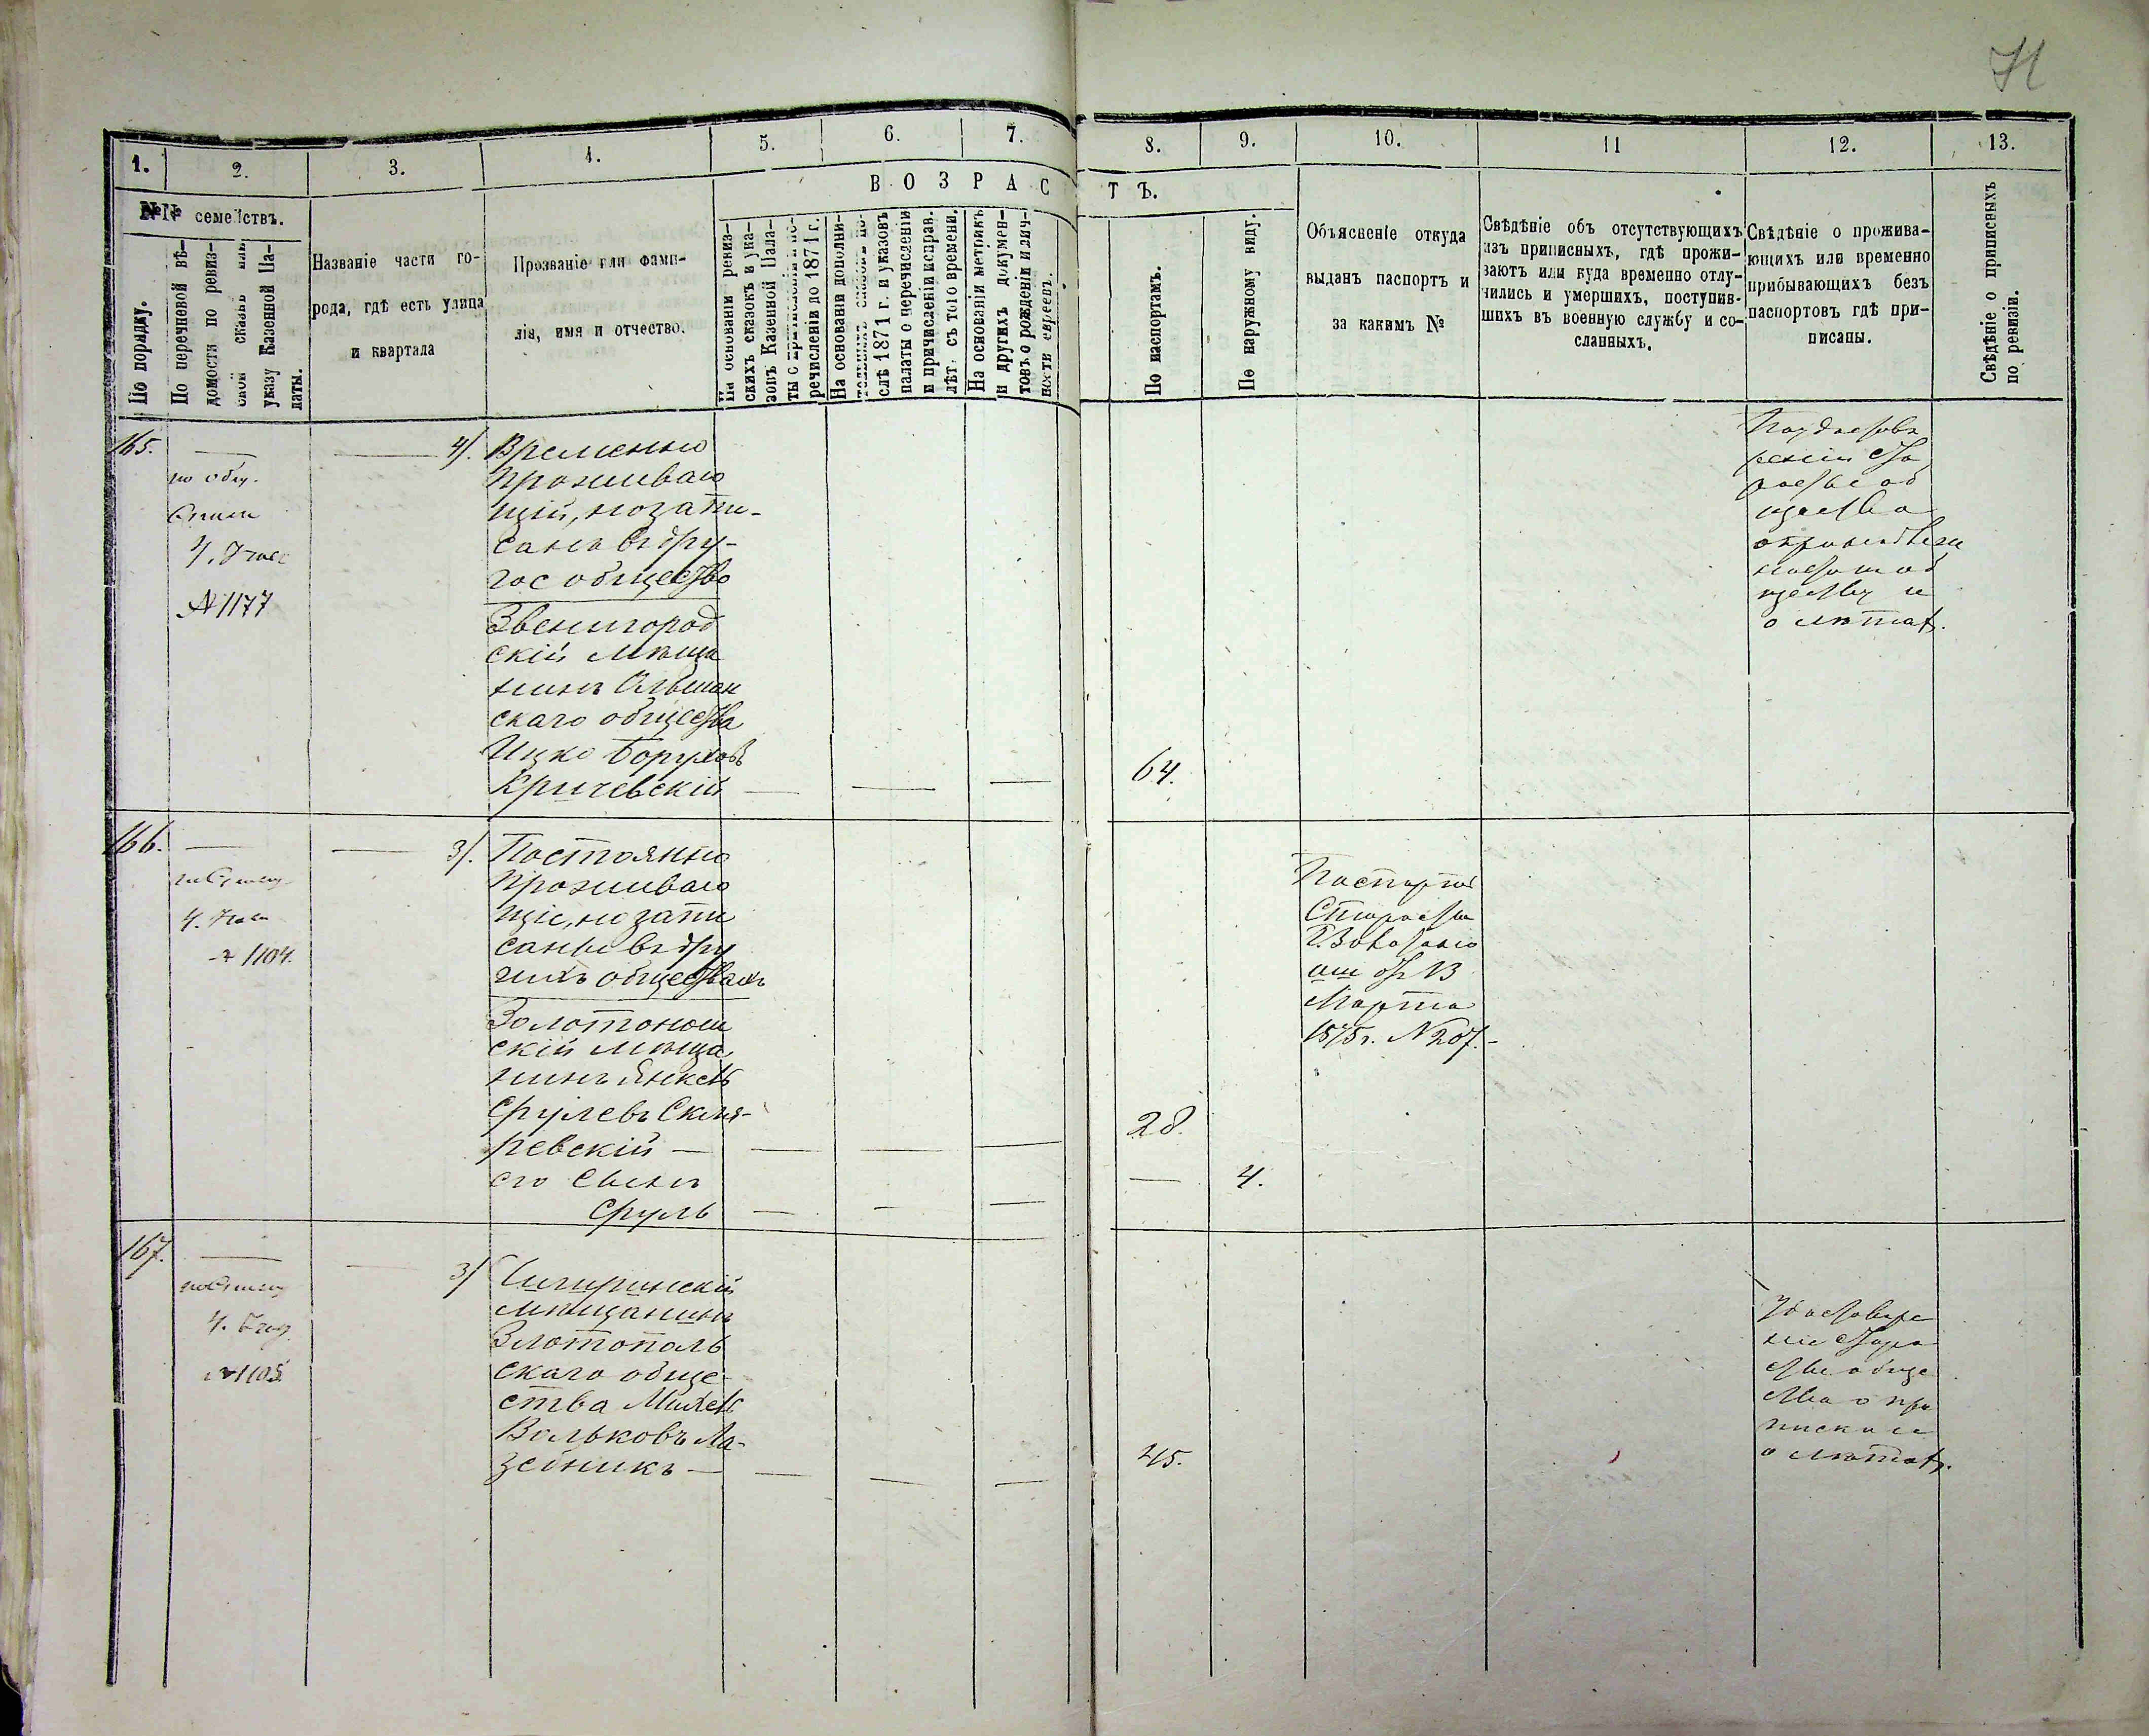 71
1.
2.
3.
4.
5.
6.
7.
8.
9.
10.
11
12.
13.
В О З Р А С Т Ъ.
№№ семействъ.
По порядку.
По перечневой вѣ-
домости по ревиз-
ской сказкѣ или
указу Казенной Па-
латы.
Названіе части го-
рода, гдѣ есть улица
и квартала
Прозваніе или фами-
лія, имя и отчество.
На основаніи ревиз-
скихъ сказокъ и ука-
зовъ Казенной Пала-
ты с
речисленіи до 1871 г.
На основаніи дополни-
слѣ 1871 г. и указовъ
палаты о перечисленіи
и причисленіи исправ.
лѣт. съ того времени.
На основаніи метрикъ
и другихъ докумен-
товъ о рожденіи и лич-
ности евреевъ.
По паспортамъ.
По наружному виду.
Объясненіе откуда
выданъ паспортъ и
за какимъ №
Свѣдѣніе объ отсутствующихъ
изъ приписныхъ, гдѣ прожи-
ваютъ или куда временно отлу-
чились и умершихъ, поступив-
шихъ въ военную службу и со-
сланныхъ.
Свѣдѣніе о прожива-
ющихъ или временно
прибывающихъ безъ
паспортовъ гдѣ при-
писаны.
Свѣдѣніе о приписныхъ
по ревизіи.
165.
по общ.
списк
Ч.
№ 1177
4/. Временно
проживаю
щій, но запи-
санъ въ дру-
гое общество
Звенигород
скій мѣща
нинъ Ольшан
скаго общества
Ицко Боруховъ
Кричевскій
64.
о лѣтахъ.
166.
Ч.
№ 1104.
3/. Постоянно
проживаю
щіе, но запи
саные въ дру
гихъ обществахъ
Золотонош
скій мѣща
нинъ Янкель
Срулевъ Скля-
ревскій —
его сынъ
Сруль
28.
4.
Паспортъ
Старосты
Г. Золотоно
ши отъ 13
Марта
1875 г. № 207.-
167.
Ч.
№ 1105.
3/ Чигиринскій
мѣщанинъ
Златополь
скаго обще-
ства Михель
Вольковъ Ла-
зебникъ —
45.
Удостовѣре
ніе Старо
сты обще
ства о при
писки и
о лѣтахъ.